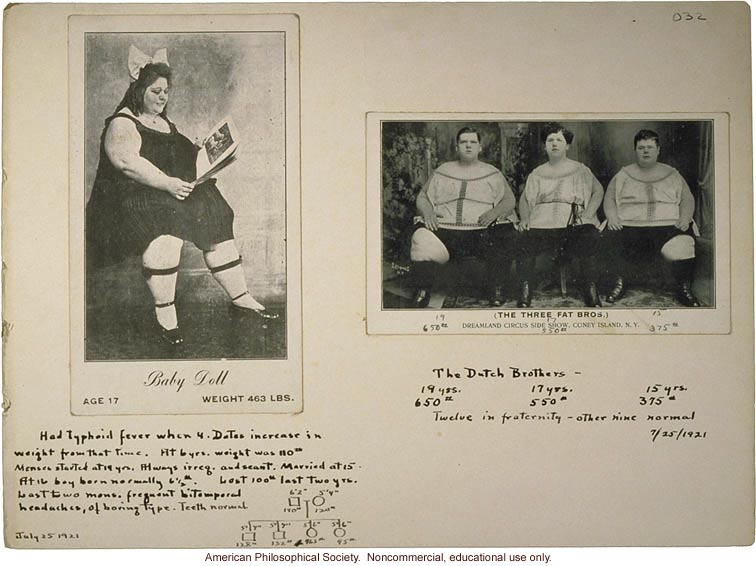 032
Baby Doll
AGE 17 WEIGHT 463 LBS.
Had typhoid fever when 4. Dates increase in
weight from that time. At 6 yrs. weight was 110#
Menses started at 14 yrs. Always irreg. and scant. Married at 15.
At 16 boy born normally 6½#. Lost 100# last two yrs.
Last two mons. frequent bitemporal
headaches, of boring type. Teeth normal
July 25 1921
6'2" 5'4"
5'7" 5'7" 5'6" 5'6"
132# 463# 95#
(THE THREE FAT BROS.)
DREAMLAND CIRCUS SIDE SHOW, CONEY ISLAND, N. Y.
19 17 15
650# 550# 375#
The Dutch Brothers -
19 yrs. 17 yrs. 15 yrs.
650# 550# 375#
Twelve in fraternity - other nine normal
7/25/1921
American Philosophical Society. Noncommercial, educational use only.